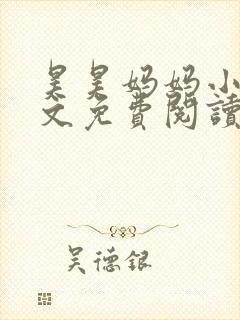 昊昊妈妈小
文免费閱讀
吴德银